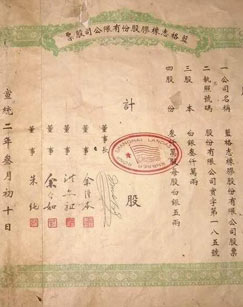 藍格志橡膠股份有限公司股票
一 公司名稱 藍格志橡膠股份有限公司股票
二 執照號碼 股份有限公司實字第一八五號
三 股本 白銀叁仟萬兩
四 股份 萬股每股白銀五兩
計 股
董事長
董事
董事
董事 朱純
宣統二年叁月初十日
SHANGHAI LANGKAT